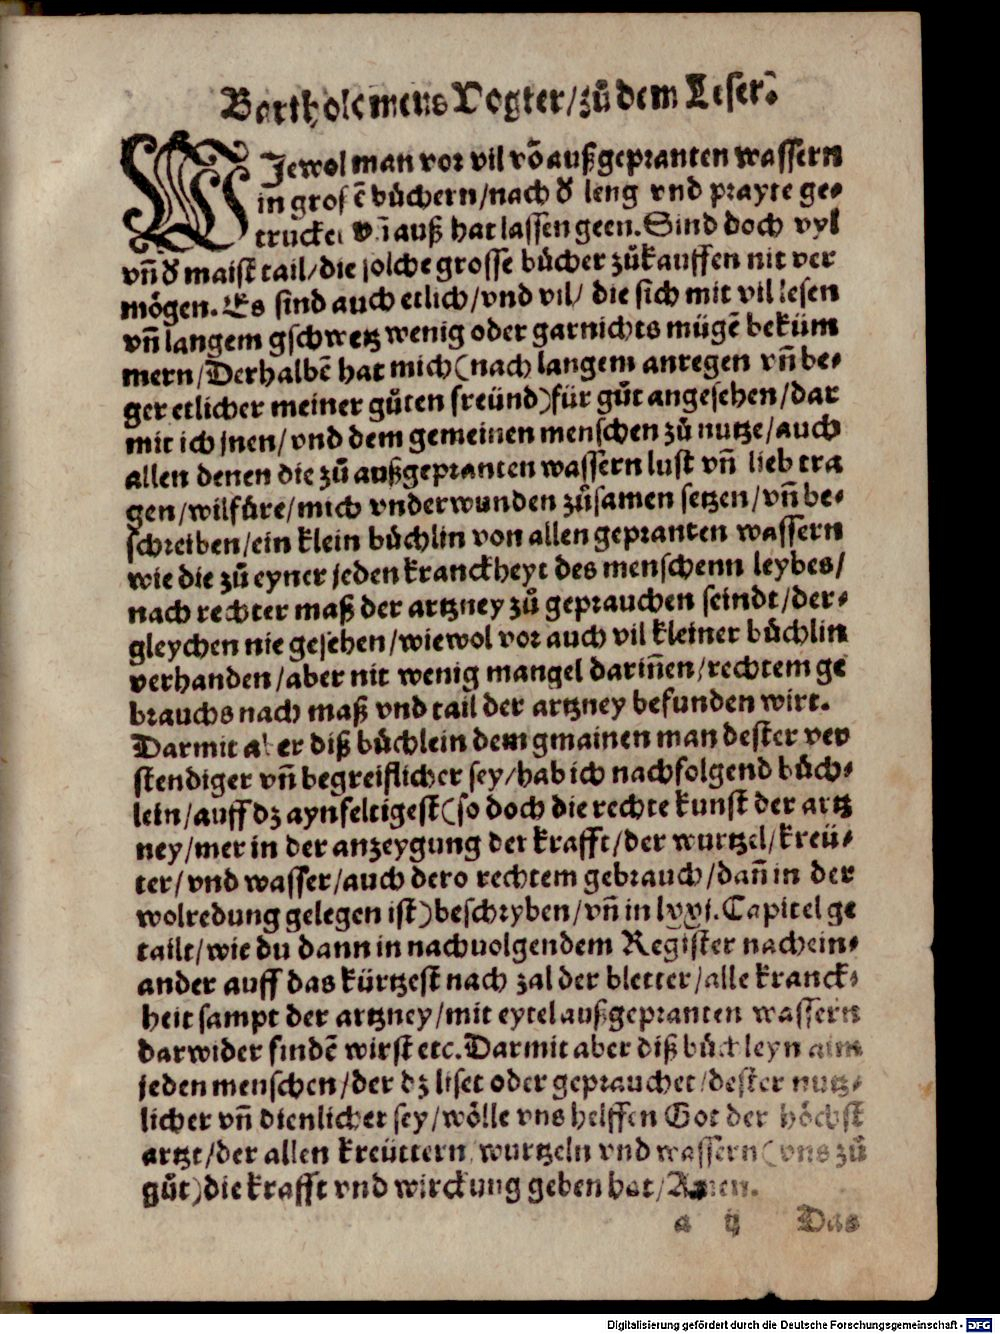 Bartholemeus Vogter/zů dem Leser.
WIewol man vor vil võ außgepranten wassern
in grosẽ bůchern/nach ď leng vnd prayte ge⸗
truckei vñ auß hat lassen geen. Sind doch vyl
vñ ď maist tail/die solche grosse bůcher zůkauffen nit ver
mögen. Es sind auch etlich/vnd vil/ die sich mit vil lesen
vñ langem gschwetz wenig oder gar nichts mügẽ beküm
mern/Derhalbẽ hat mich (nach langem anregen vñ be⸗
ger etlicher meiner gůten freünd) für gůt angesehen/dar
mit ich jnen/vnd dem gemeinen menschen zů nutze/auch
allen denen die zů außgepranten wassern lust vñ lieb tra
gen/wilfüre/mich vnderwunden zůsamen setzen/vñ be⸗
schreiben/ein klein büchlin von allen gepranten wassern
wie die zů eyner jeden kranckheyt des menschenn leybes/
nach rechter maß der artzney zů geprauchen seindt/der⸗
gleychen nie gesehen/wiewol vor auch vil kleiner büchlin
verhanden/aber nit wenig mangel dariñen/rechtem ge
brauchs nach maß vnd tail der artzney befunden wirt.
Darmit aber diß büchlein dem gmainen man dester ver
stendiger vñ begreiflicher sey/hab ich nachfolgend büch⸗
lein/auff dz aynfeltigest (so doch die rechte kunst der artz
ney/mer in der anzeygung der krafft/der wurtzel/kreü⸗
ter/vnd wasser/auch dero rechtem gebrauch/dañ in der
wolredung gelegen ist) beschryben/vñ in lxxj. Capitel ge
tailt/wie du dann in nachuolgendem Register nachein⸗
ander auff das kürtzest nach zal der bletter/alle kranck⸗
heit sampt der artzney/mit eytel außgepranten wassern
darwider findẽ wirst etc. Darmit aber diß büchleyn aim
jeden menschen/der dz liset oder geprauchet/dester nutz⸗
licher vñ dienlicher sey/wölle vns helffen Got der höchst
artzt/der allen kreüttern/wurtzeln vnd wassern (vns zů
gůt) die krafft vnd wirckung geben hat/Amen.
a ij Das
Digitalisierung gefördert durch die Deutsche Forschungsgemeinschaft - DFG